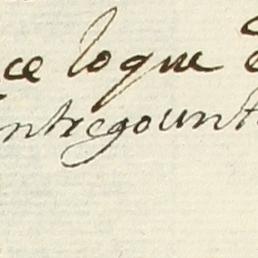 ce loque
entrego un